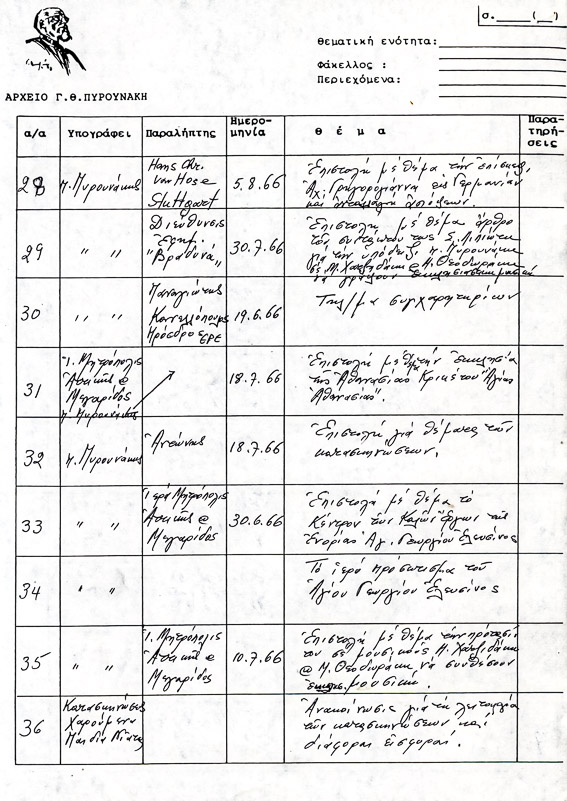 σ.____(__)
θεματική ενότητα:
Φάκελλος :
Περιεχόμενα:
ΑΡΧΕΙΟ Γ.Θ.ΠΥΡΟΥΝΑΚΗ
α/α Υπογράφει Παραλήπτης Ημερομηνία θέμα Παρατηρήσεις
28 π. Πυρουνάκης Hans Chr. von Hase Stuttgart 5.8.66
Ἐπιστολή μέ θέμα τήν ἐπίσκεψι
Ἀχ. Γρηγορόγιαννα εἰς Γερμανίαν
καί
29 " " Διεύθυνσις Ἐφημ. "Βραδυνά" 30.7.66
Ἐπιστολή μέ θέμα ἄρθρο
τοῦ συντάκτου της
γιά τήν π. Πυρουνάκη
σέ Μ. Χατζηδάκι @ Μ. Θεοδωράκη
νά γράψουν ἐκκλησιαστική μουσική
30 " " Παναγιώτης Κανελλόπουλος Πρόεδρο ΕΡΕ 19.6.66
Τηλ/μα συγχαρητηρίων
31 Ἱ. Μητρόπολις Ἀττικῆς @ Μεγαρίδος π. Πυρουνάκης 18.7.66
Ἐπιστολή μέ θέμα τήν ἐκκλησία
της Ἀθανασίας Κρικέτου Ἁγίας
Ἀθανασίας.
32 π. Πυρουνάκης Ἀντώνης 18.7.66
Ἐπιστολή γιά θέματα τῶν
κατασκηνώσεων.
33 " " Ἱερά Μητρόπολις Ἀττικῆς @ Μεγαρίδος 30.6.66
Ἐπιστολή μέ θέμα τό
Κέντρον τῶν Καλῶν Ἔργων τῆς
Ἐνορίας Ἁγ. Γεωργίου Ἐλευσῖνος
34 " "
Τό ἱερό προσκύνημα τοῦ
Ἁγίου Γεωργίου Ἐλευσῖνος
35 " " Ἱ. Μητρόπολις Ἀττικῆς @ Μεγαρίδος 10.7.66
Ἐπιστολή μέ θέμα τήν πρότασί
του σέ μουσικούς Μ. Χατζιδάκι
@ Μ. Θεοδωράκη νά συνθέσουν
ἐκκλησ. μουσική
36 Κατασκηνώσεις Χαρούμενα Παιδιά Νιάτα
Ἀνακοίνωσις γιά τή λειτουργία
τῶν κατασκηνώσεων καί
διάφοροι εἰσφοραί.